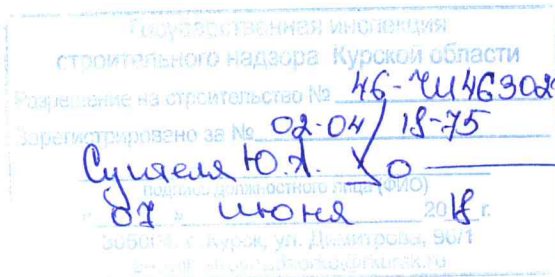 Государственная инспекция
строительного надзора Курской области
Разрешение на строительство №
Зарегистрировано за № 02-04/18-75
Ю.А.
подпись должностного лица (ФИО)
" 07 " июня 2018 г.
г. Курск, ул. Димитрова, 96/1